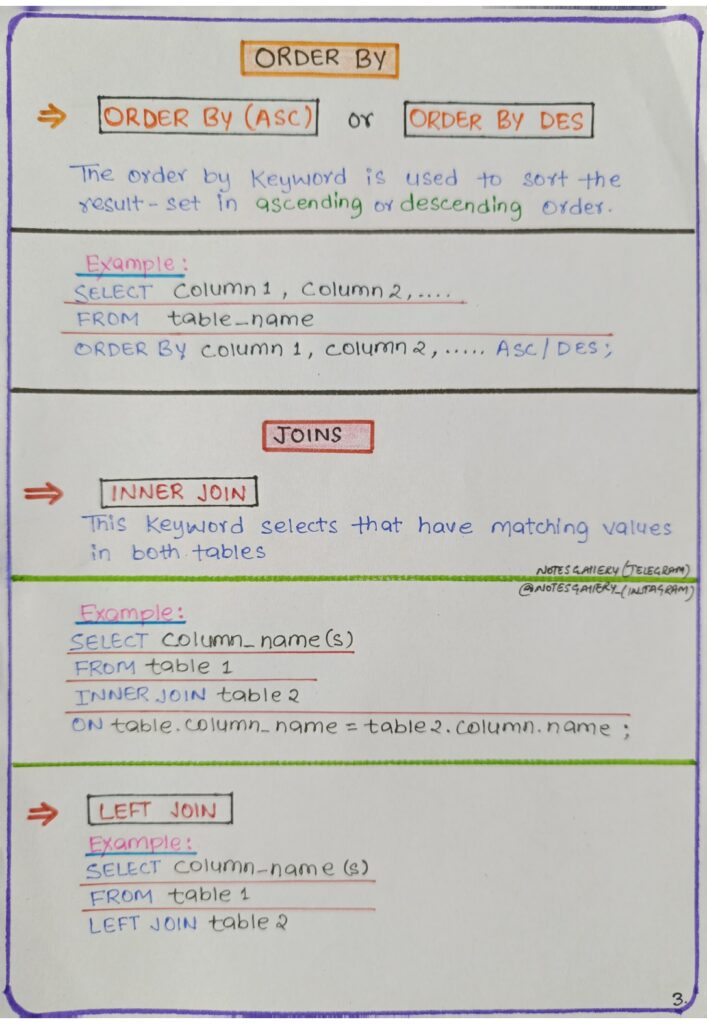 ORDER BY
⇒ ORDER BY (ASC) or ORDER BY DES
The order by Keyword is used to sort the
result-set in ascending or descending order.
Example:
SELECT Column1, Column2,....
FROM table_name
ORDER BY column1, column2,..... ASC/DES;
JOINS
⇒ INNER JOIN
This Keyword selects that have matching values
in both tables
NOTESGALLERY (TELEGRAM)
@NOTESGALLERY_(INSTAGRAM)
Example:
SELECT Column_name(s)
FROM table 1
INNER JOIN table 2
ON table.column_name = table2.column.name ;
⇒ LEFT JOIN
Example:
SELECT Column_name(s)
FROM table 1
LEFT JOIN table 2
3.